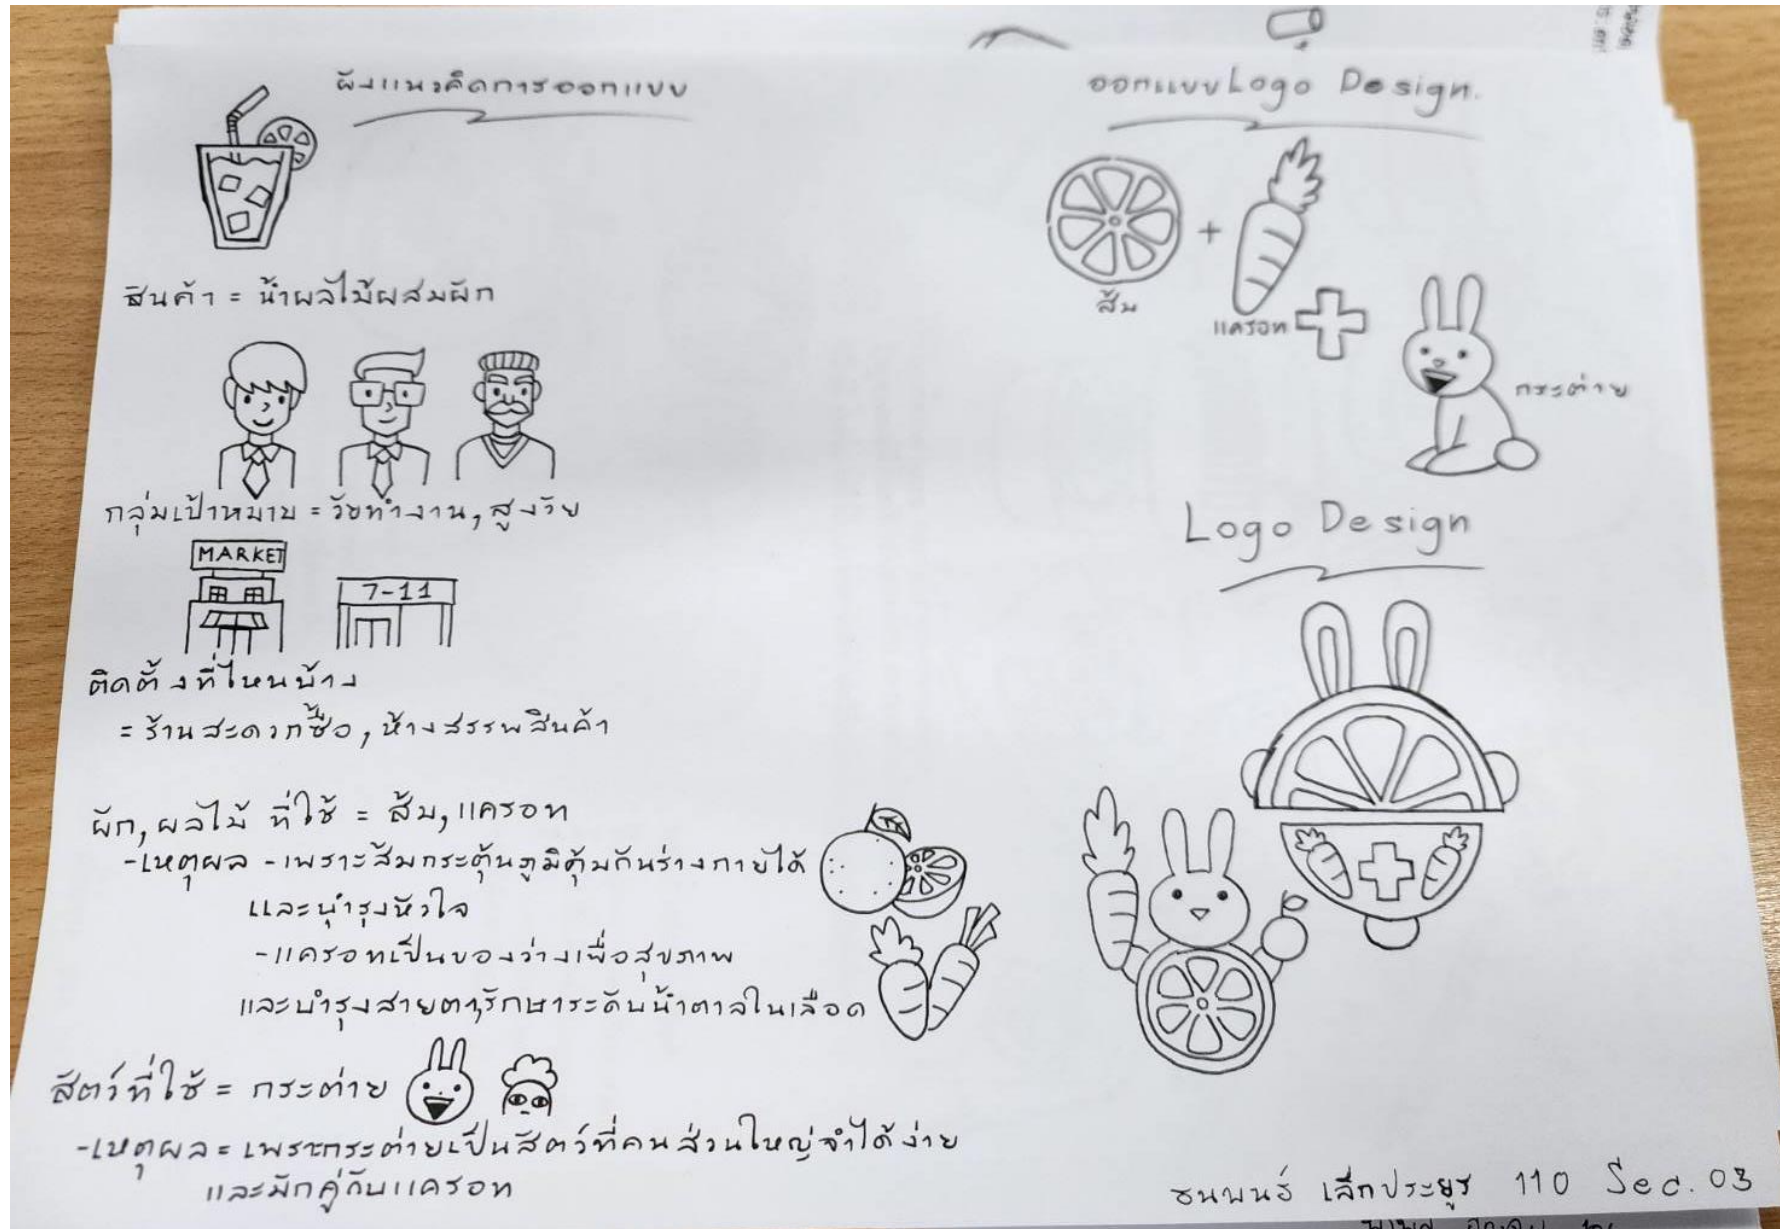 ผังแนวคิดการออกแบบ
สินค้า = น้ำผลไม้ผสมผัก
กลุ่มเป้าหมาย = วัยทำงาน, สูงวัย
MARKET
7-11
ติดตั้งที่ไหนบ้าง
= ร้านสะดวกซื้อ, ห้างสรรพสินค้า
ผัก, ผลไม้ ที่ใช้ = ส้ม, แครอท
-เหตุผล - เพราะส้มกระตุ้นภูมิคุ้มกันร่างกายได้
และบำรุงหัวใจ
-แครอทเป็นของว่างเพื่อสุขภาพ
และบำรุงสายตา,รักษาระดับน้ำตาลในเลือด
สัตว์ที่ใช้ = กระต่าย
-เหตุผล = เพราะกระต่ายเป็นสัตว์ที่คนส่วนใหญ่จำได้ง่าย
และมักคู่กับแครอท
ออกแบบLogo Design.
+
ส้ม
แครอท
กระต่าย
Logo Design
ธนพนธ์ เล็กประยูร 110 Sec. 03